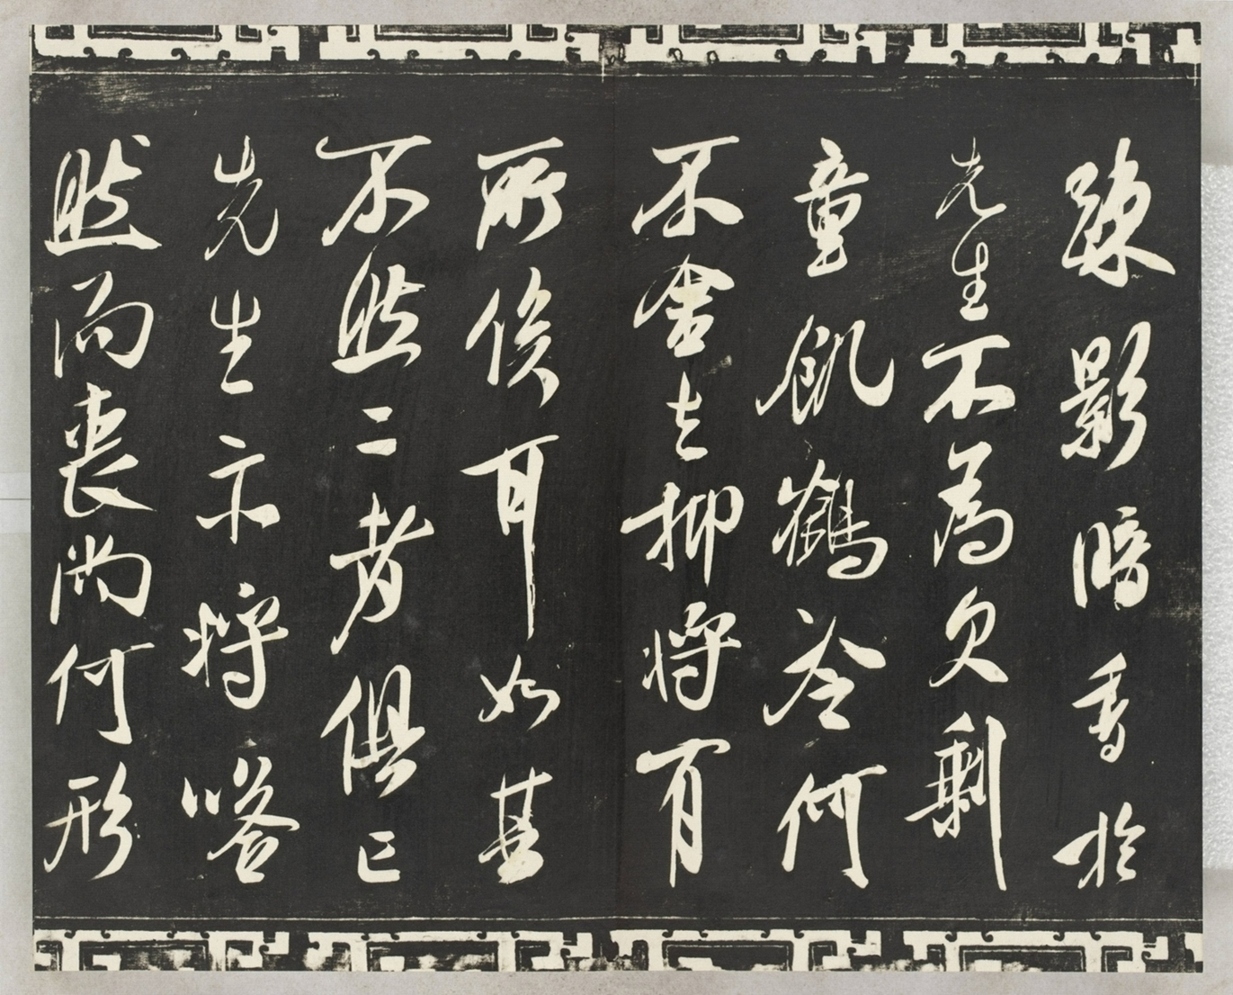 疎影暗香於
先生不為欠剩
童飢鶴冷何
不舍之抑將有
所俟耶如其
不然二者俱亡
先生亦將嗒
然而喪尚何形